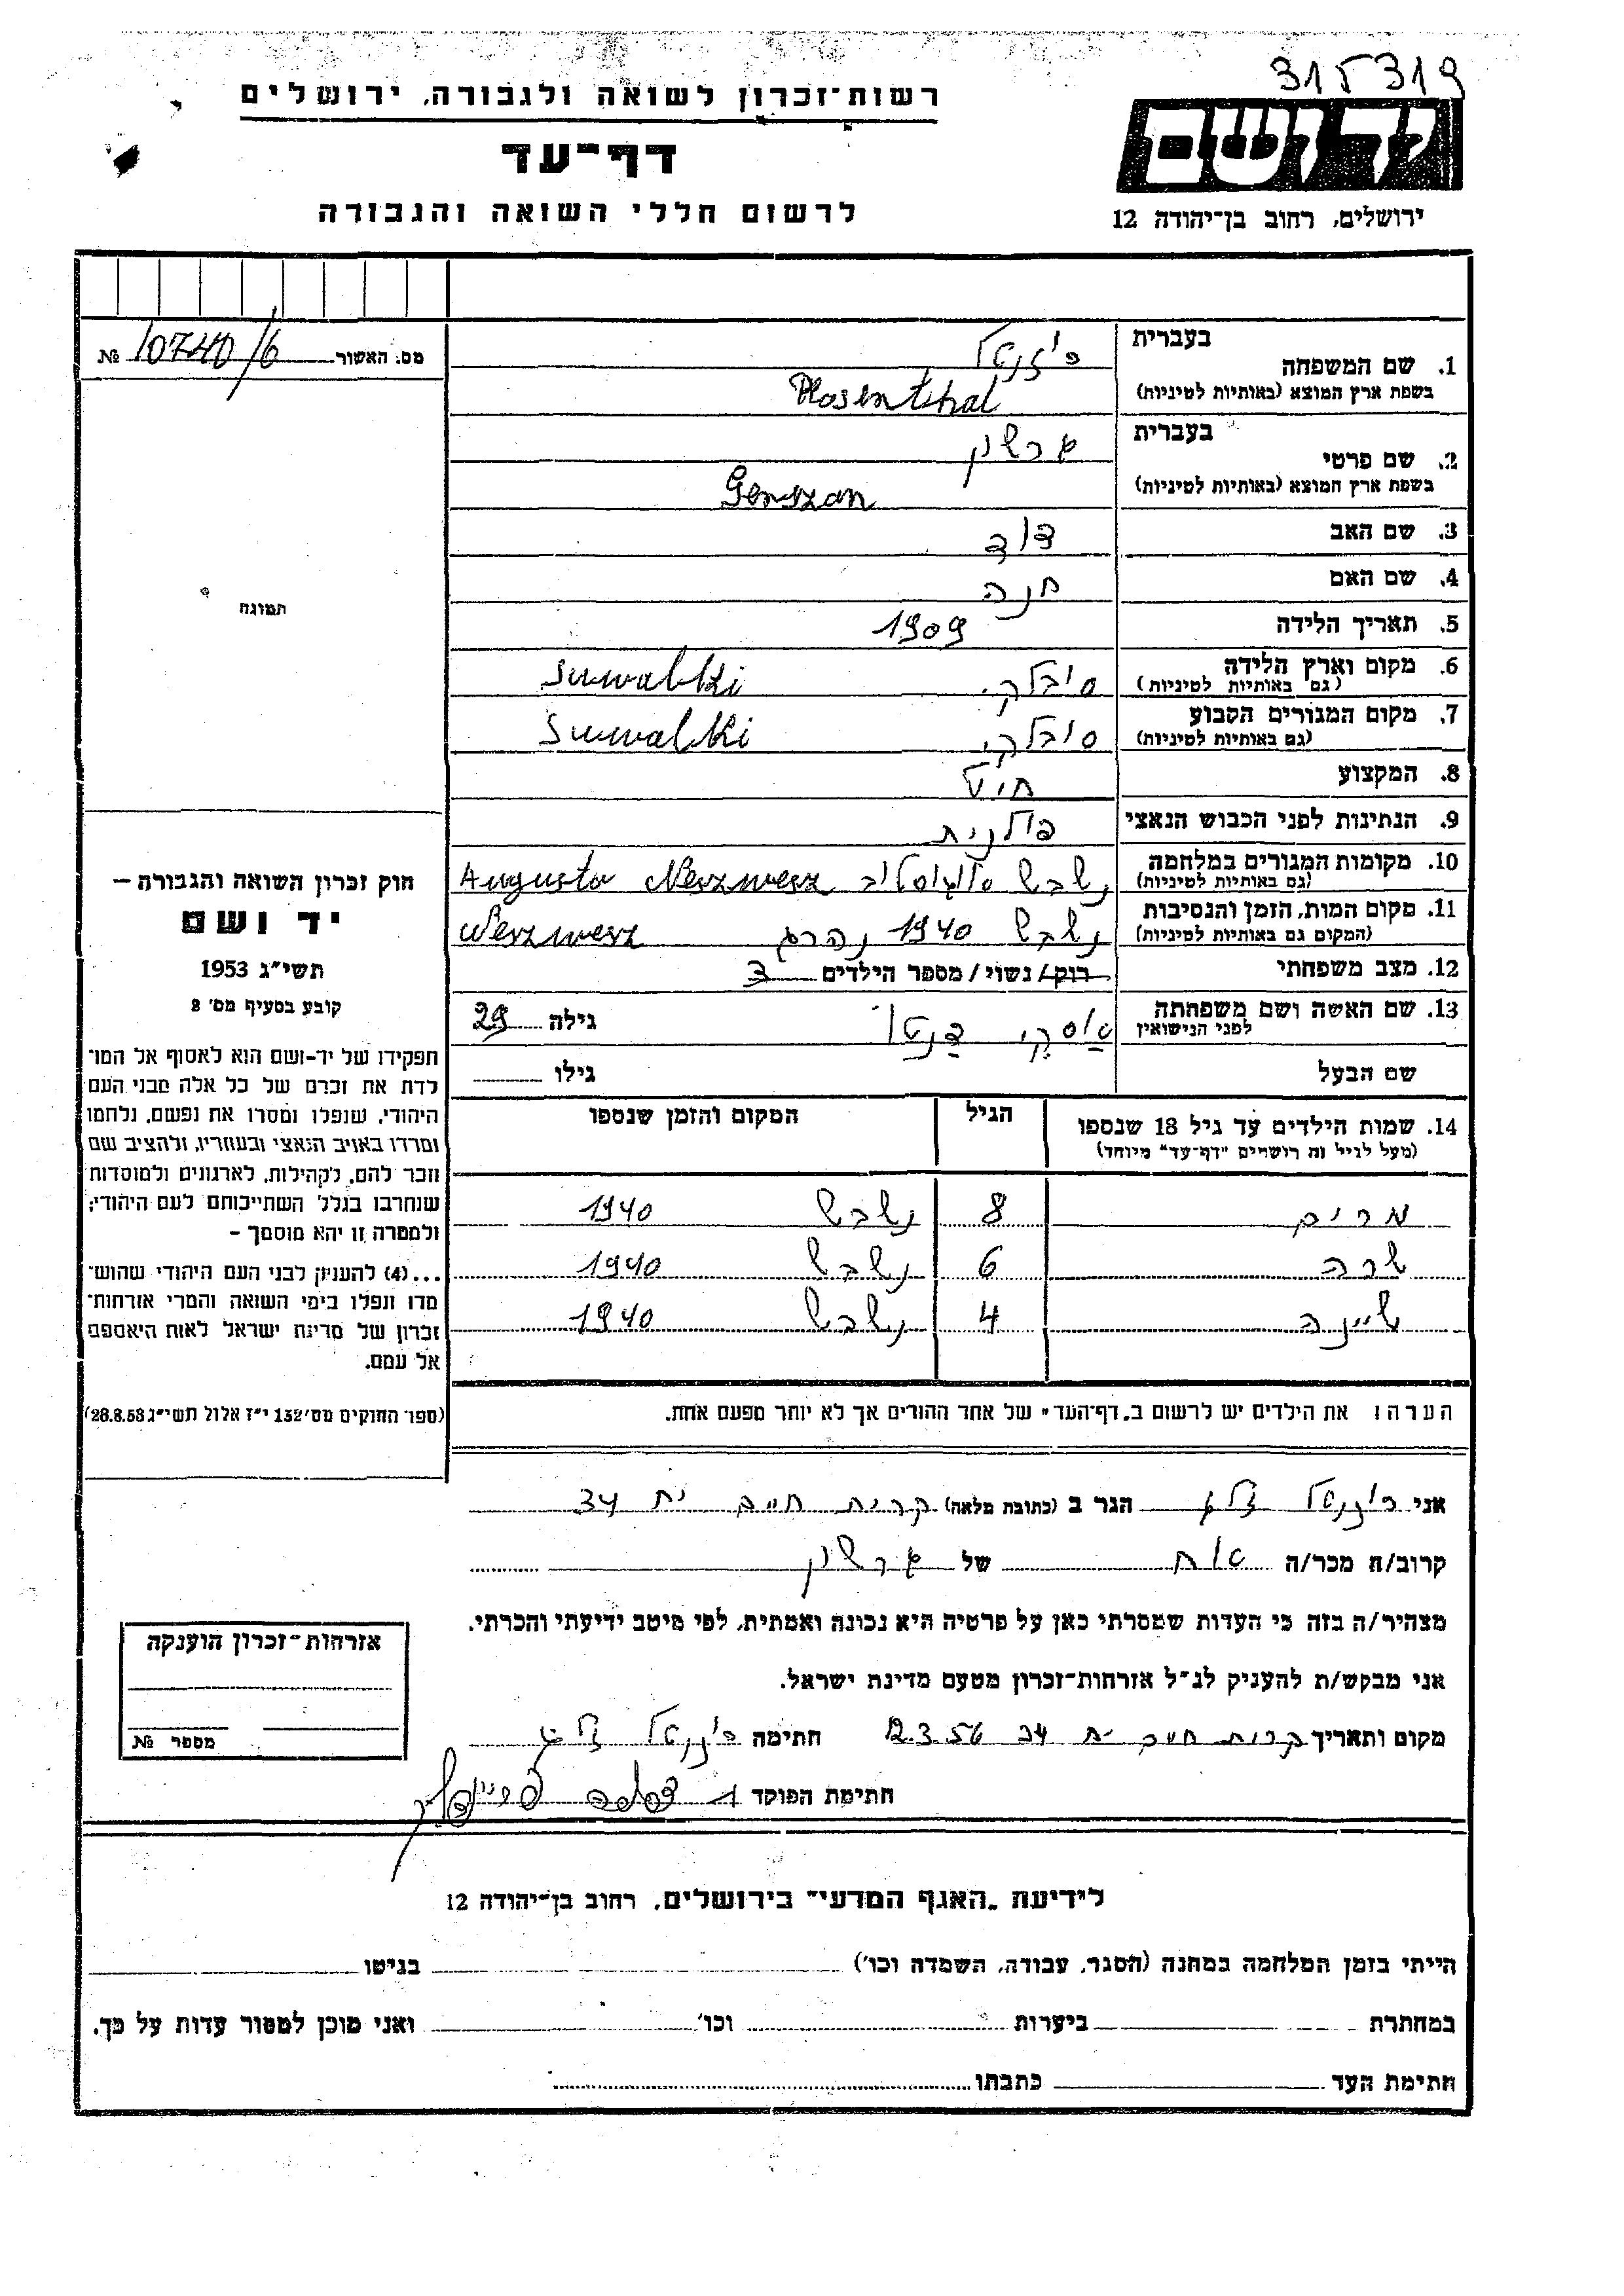 315319
רשות־זכרון לשואה ולגבורה, ירושלים
דף־עד
לרשום חללי השואה והגבורה
יד ושם
ירושלים, רחוב בן־יהודה 12
מס. האשור 10740/6 №
תמונה
חוק זכרון השואה והגבורה —
יד ושם
תשי״ג 1953
קובע בסעיף מס׳ 2
תפקידו של יד־ושם הוא לאסוף אל המו־
לדת את זכרם של כל אלה מבני העם
היהודי, שנפלו ומסרו את נפשם, נלחמו
ומרדו באויב הנאצי ובעוזריו, ולהציב שם
וזכר להם, לקהילות, לארגונים ולמוסדות
שנחרבו בגלל השתייכותם לעם היהודי;
ולמטרה זו יהא מוסמך —
...(4) להעניק לבני העם היהודי שהוש־
מדו ונפלו בימי השואה והמרי אזרחות־
זכרון של מדינת ישראל לאות היאספם
אל עמם.
(ספר החוקים מס׳ 132 י״ז אלול תשי״ג 28.8.53)
1. שם המשפחה בעברית
בשפת ארץ המוצא (באותיות לטיניות) Rosenthal
2. שם פרטי בעברית גרשון
בשפת ארץ המוצא (באותיות לטיניות) Gerszon
3. שם האב דוד
4. שם האם חנה
5. תאריך הלידה 1909
6. מקום וארץ הלידה (גם באותיות לטיניות) סובלקי Suwalki
7. מקום המגורים הקבוע (גם באותיות לטיניות) סובלקי Suwalki
8. המקצוע חיט
9. הנתינות לפני הכבוש הנאצי פולנית
10. מקומות המגורים במלחמה (גם באותיות לטיניות) נשבש
11. מקום המות, הזמן והנסיבות (המקום גם באותיות לטיניות) נשבש 1940 נהרג
12. מצב משפחתי רוק/ נשוי/ מספר הילדים 3
13. שם האשה ושם משפחתה לפני הנישואין גילה 29
שם הבעל גילו
14. שמות הילדים עד גיל 18 שנספו (מעל לגיל זה רושמים "דף־עד" מיוחד) הגיל המקום והזמן שנספו
מרים 8 נשבש 1940
שרה 6 נשבש 1940
שיינה 4 נשבש 1940
הערה: את הילדים יש לרשום ב„דף־העד״ של אחד ההורים אך לא יותר מפעם אחת.
אני הגר ב (כתובת מלאה) קרית חיים 34
קרוב/ה מכר/ה אח של גרשון
מצהיר/ה בזה כי העדות שמסרתי כאן על פרטיה היא נכונה ואמתית, לפי מיטב ידיעתי והכרתי.
אני מבקש/ת להעניק לנ״ל אזרחות־זכרון מטעם מדינת ישראל.
מקום ותאריך קרית חיים 34 12.3.56 חתימה
חתימת הפוקד
אזרחות־זכרון הוענקה
מספר №
לידיעת „האגף המדעי״ בירושלים, רחוב בן־יהודה 12
הייתי בזמן המלחמה במחנה (הסגר, עבודה, השמדה וכו׳) בגיטו
במחתרת ביערות וכו׳ ואני מוכן למסור עדות על כך.
חתימת העד כתבתו